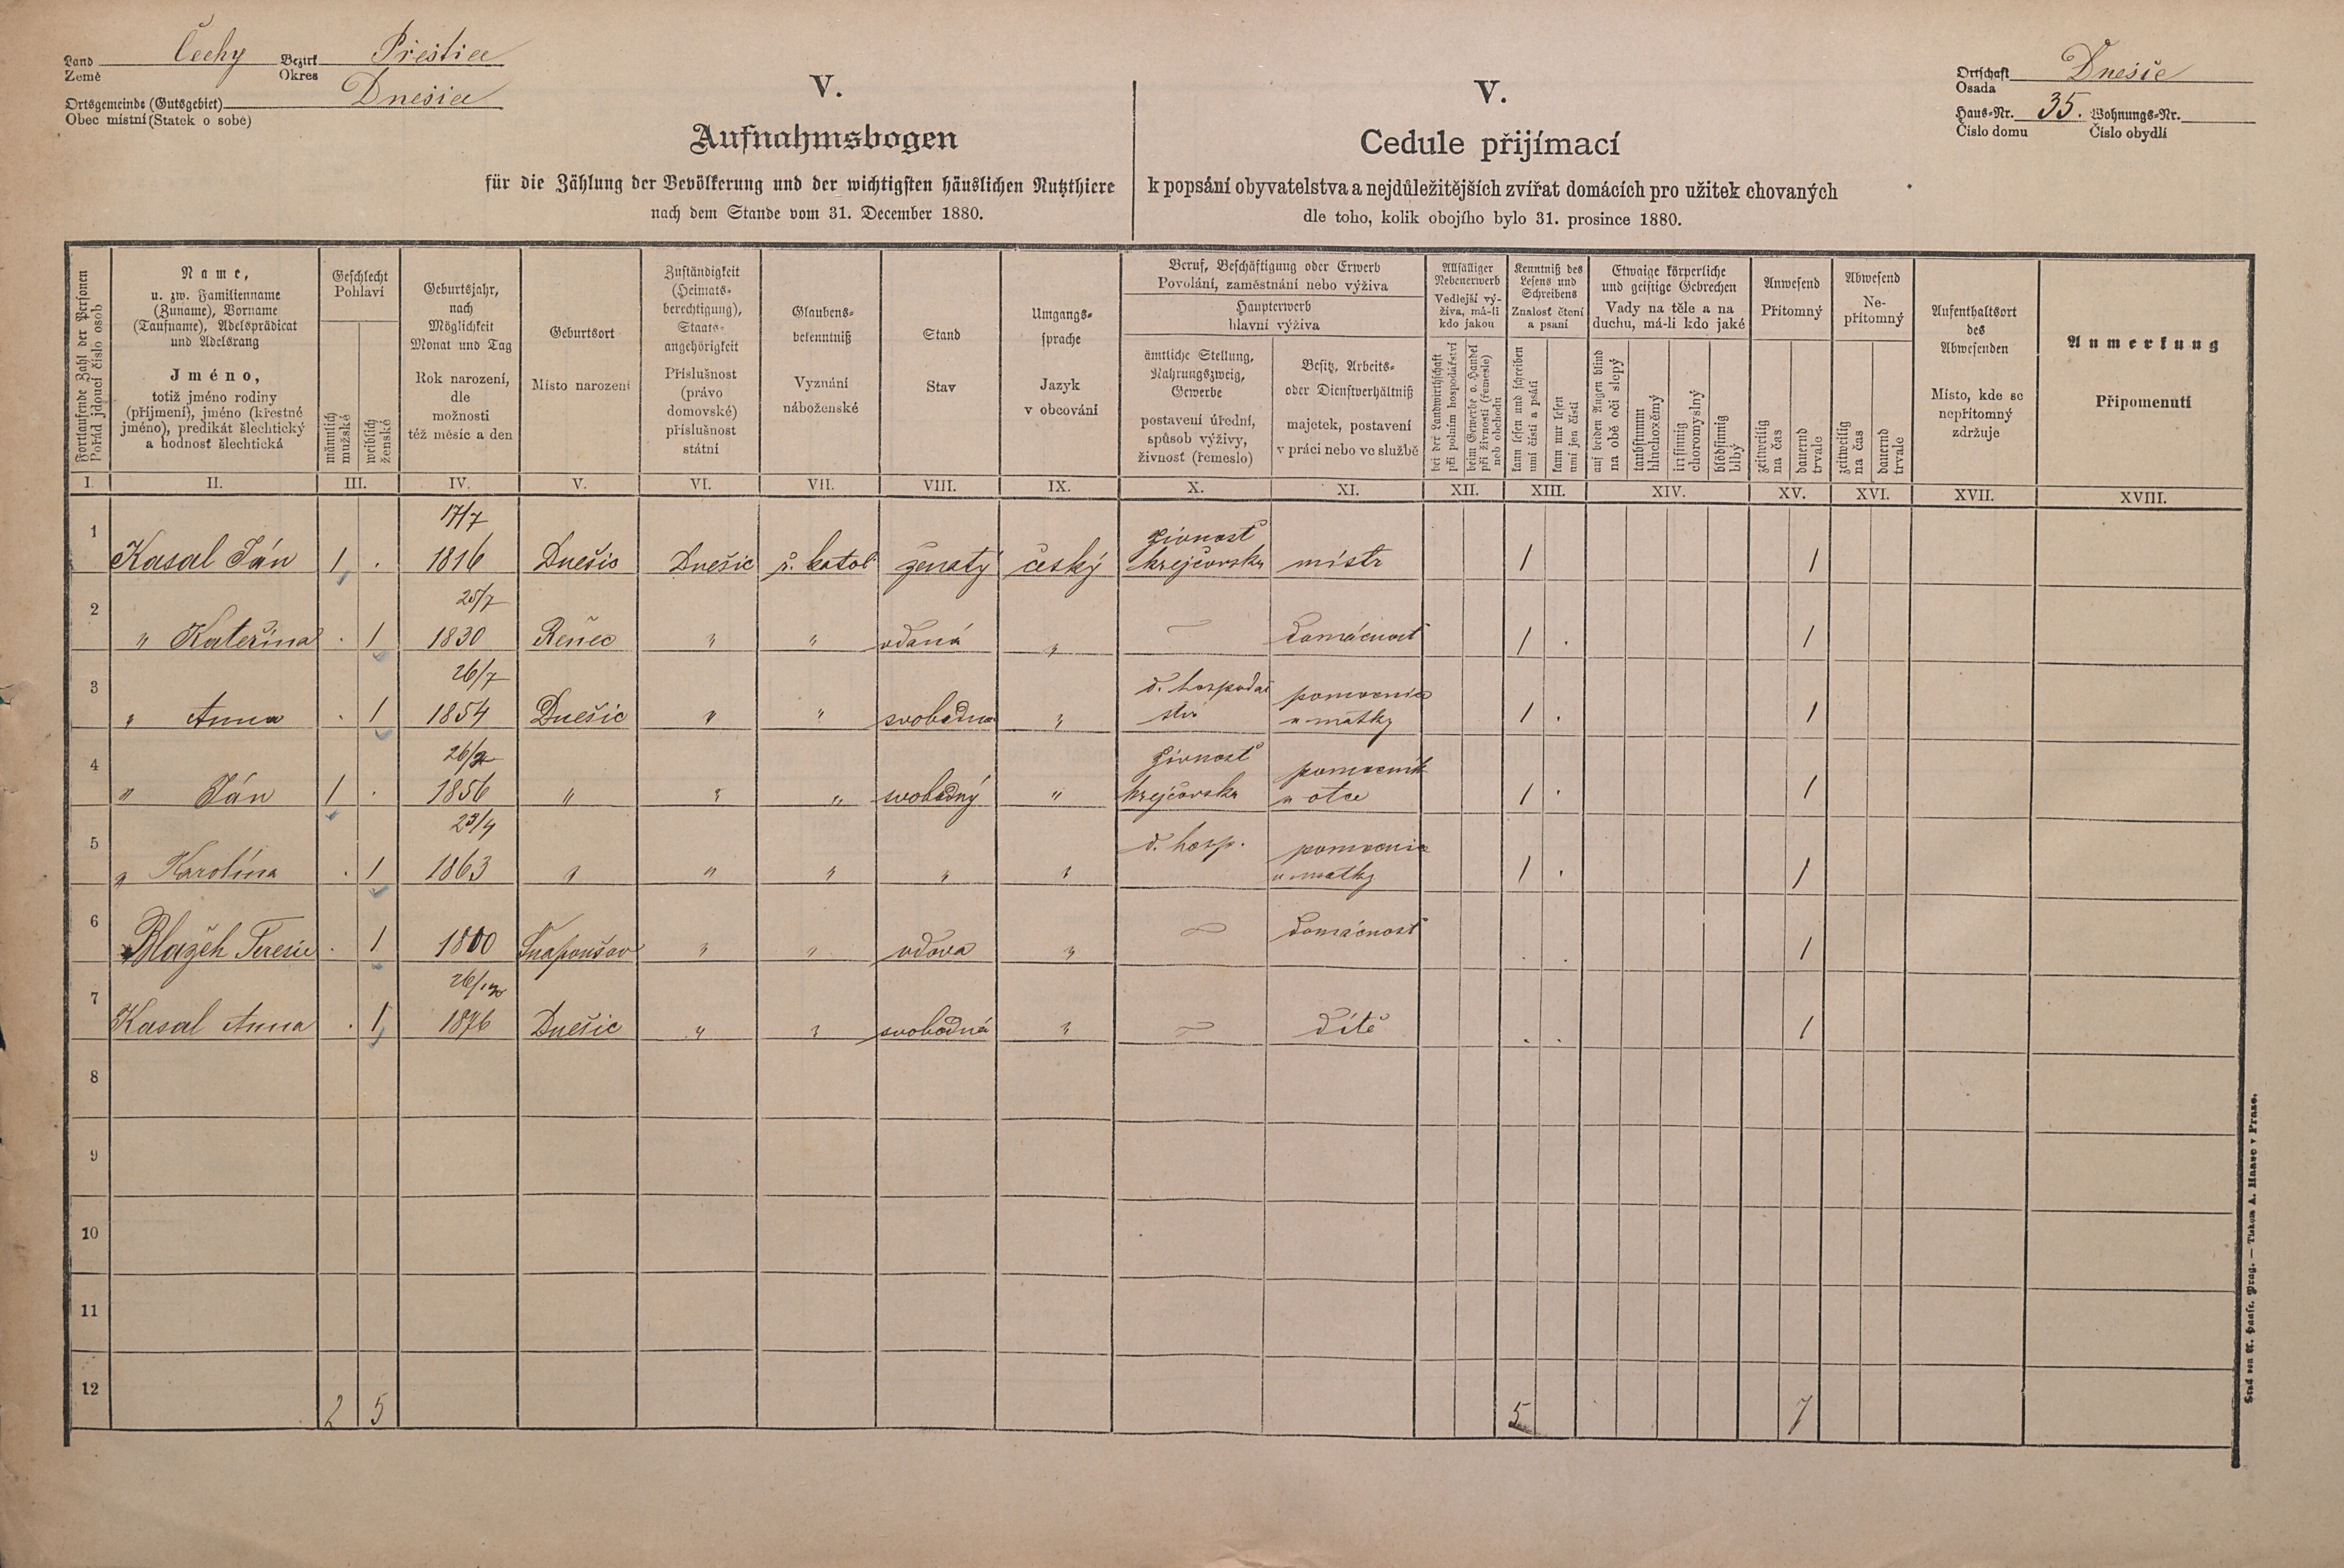 Land Čechy Bezirk Přestice
Země Okres
Ortsgemeinde (Gutsgebiet) Dnešice
Obec místní (Statek o sobě)
Ortschaft Dnešic
Osada
Haus-Nr. 35. Wohnungs-Nr.
Číslo domu Číslo obydlí
V.
Aufnahmsbogen
für die Zählung der Bevölkerung und der wichtigsten häuslichen Nutzthiere
nach dem Stande vom 31. December 1880.
V.
Cedule přijímací
k popsání obyvatelstva a nejdůležitějších zvířat domácích pro užitek chovaných
dle toho, kolik obojího bylo 31. prosince 1880.
Fortlaufende Zahl der Personen
Pořád jdoucí číslo osob
Name,
u. zw. Familienname
(Zuname), Vorname
(Taufname), Adelsprädicat
und Adelsrang
Jméno,
totiž jméno rodiny
(příjmení), jméno (křestné
jméno), predikát šlechtický
a hodnost šlechtická
Geschlecht
Pohlaví
männlich
mužské
weiblich
ženské
Geburtsjahr,
nach
Möglichkeit
Monat und Tag
Rok narození,
dle
možnosti
též měsíc a den
Geburtsort
Místo narození
Zuständigkeit
(Heimats-
berechtigung),
Staats-
angehörigkeit
Příslušnost
(právo
domovské)
příslušnost
státní
Glaubens-
bekenntniß
Vyznání
náboženské
Stand
Stav
Umgangs-
sprache
Jazyk
v obcování
Beruf, Beschäftigung oder Erwerb
Povolání, zaměstnání nebo výživa
Haupterwerb
hlavní výživa
ämtliche Stellung,
Nahrungszweig,
Gewerbe
postavení úřední,
spůsob výživy,
živnost (řemeslo)
Besitz, Arbeits-
oder Dienstverhältniß
majetek, postavení
v práci nebo ve službě
Allfälliger
Nebenerwerb
Vedlejší vý-
živa, má-li
kdo jakou
bei der Landwirthschaft
při polním hospodářství
beim Gewerbe o. Handel
při živnosti (řemesle)
neb obchodu
Kenntniß des
Lesens und
Schreibens
Znalost čtení
a psaní
kann lesen und schreiben
umí čísti a psáti
kann nur lesen
umí jen čísti
Etwaige körperliche
und geistige Gebrechen
Vady na těle a na
duchu, má-li kdo jaké
auf beiden Augen blind
na obě oči slepý
taubstumm
hluchoněmý
irrsinnig
choromyslný
blödsinnig
blbý
Anwesend
Přítomný
zeitweilig
na čas
dauernd
trvale
Abwesend
Ne-
přítomný
zeitweilig
na čas
dauernd
trvale
Aufenthaltsort
des
Abwesenden
Místo, kde se
nepřítomný
zdržuje
Anmerkung
Připomenutí
I. II. III. IV. V. VI. VII. VIII. IX. X. XI. XII. XIII. XIV. XV. XVI. XVII. XVIII.
17/7 živnost
1 Kasal Ján 1 . 1816 Dnešic Dnešic ř. katol ženatý český krejčovska mistr 1 1
25/7
2 " Kateřina . 1 1830 Řenec " " vdaná " — domácnost 1 . 1
26/7 d. hospodař pomocnice
3 " Anna . 1 1854 Dnešic " " svobodna " stvi u matky 1 . 1
živnost pomocník
4 " Ján 1 . 1856 " " " svobodný " krejčovska u otce 1 . 1
23/4 d. hosp. pomocnice
5 " Karolína . 1 1863 " " " " " u matky 1 . 1
6 Blažek Teresie . 1 1800 " " vdova " — domácnost . . 1
7 Kasal Anna . 1 1876 Dnešic " " svobodná " — dítě . . 1
8
9
10
11
12 2 5 5 7
Druck von A. Haase, Prag. — Tiskem A. Haase v Praze.